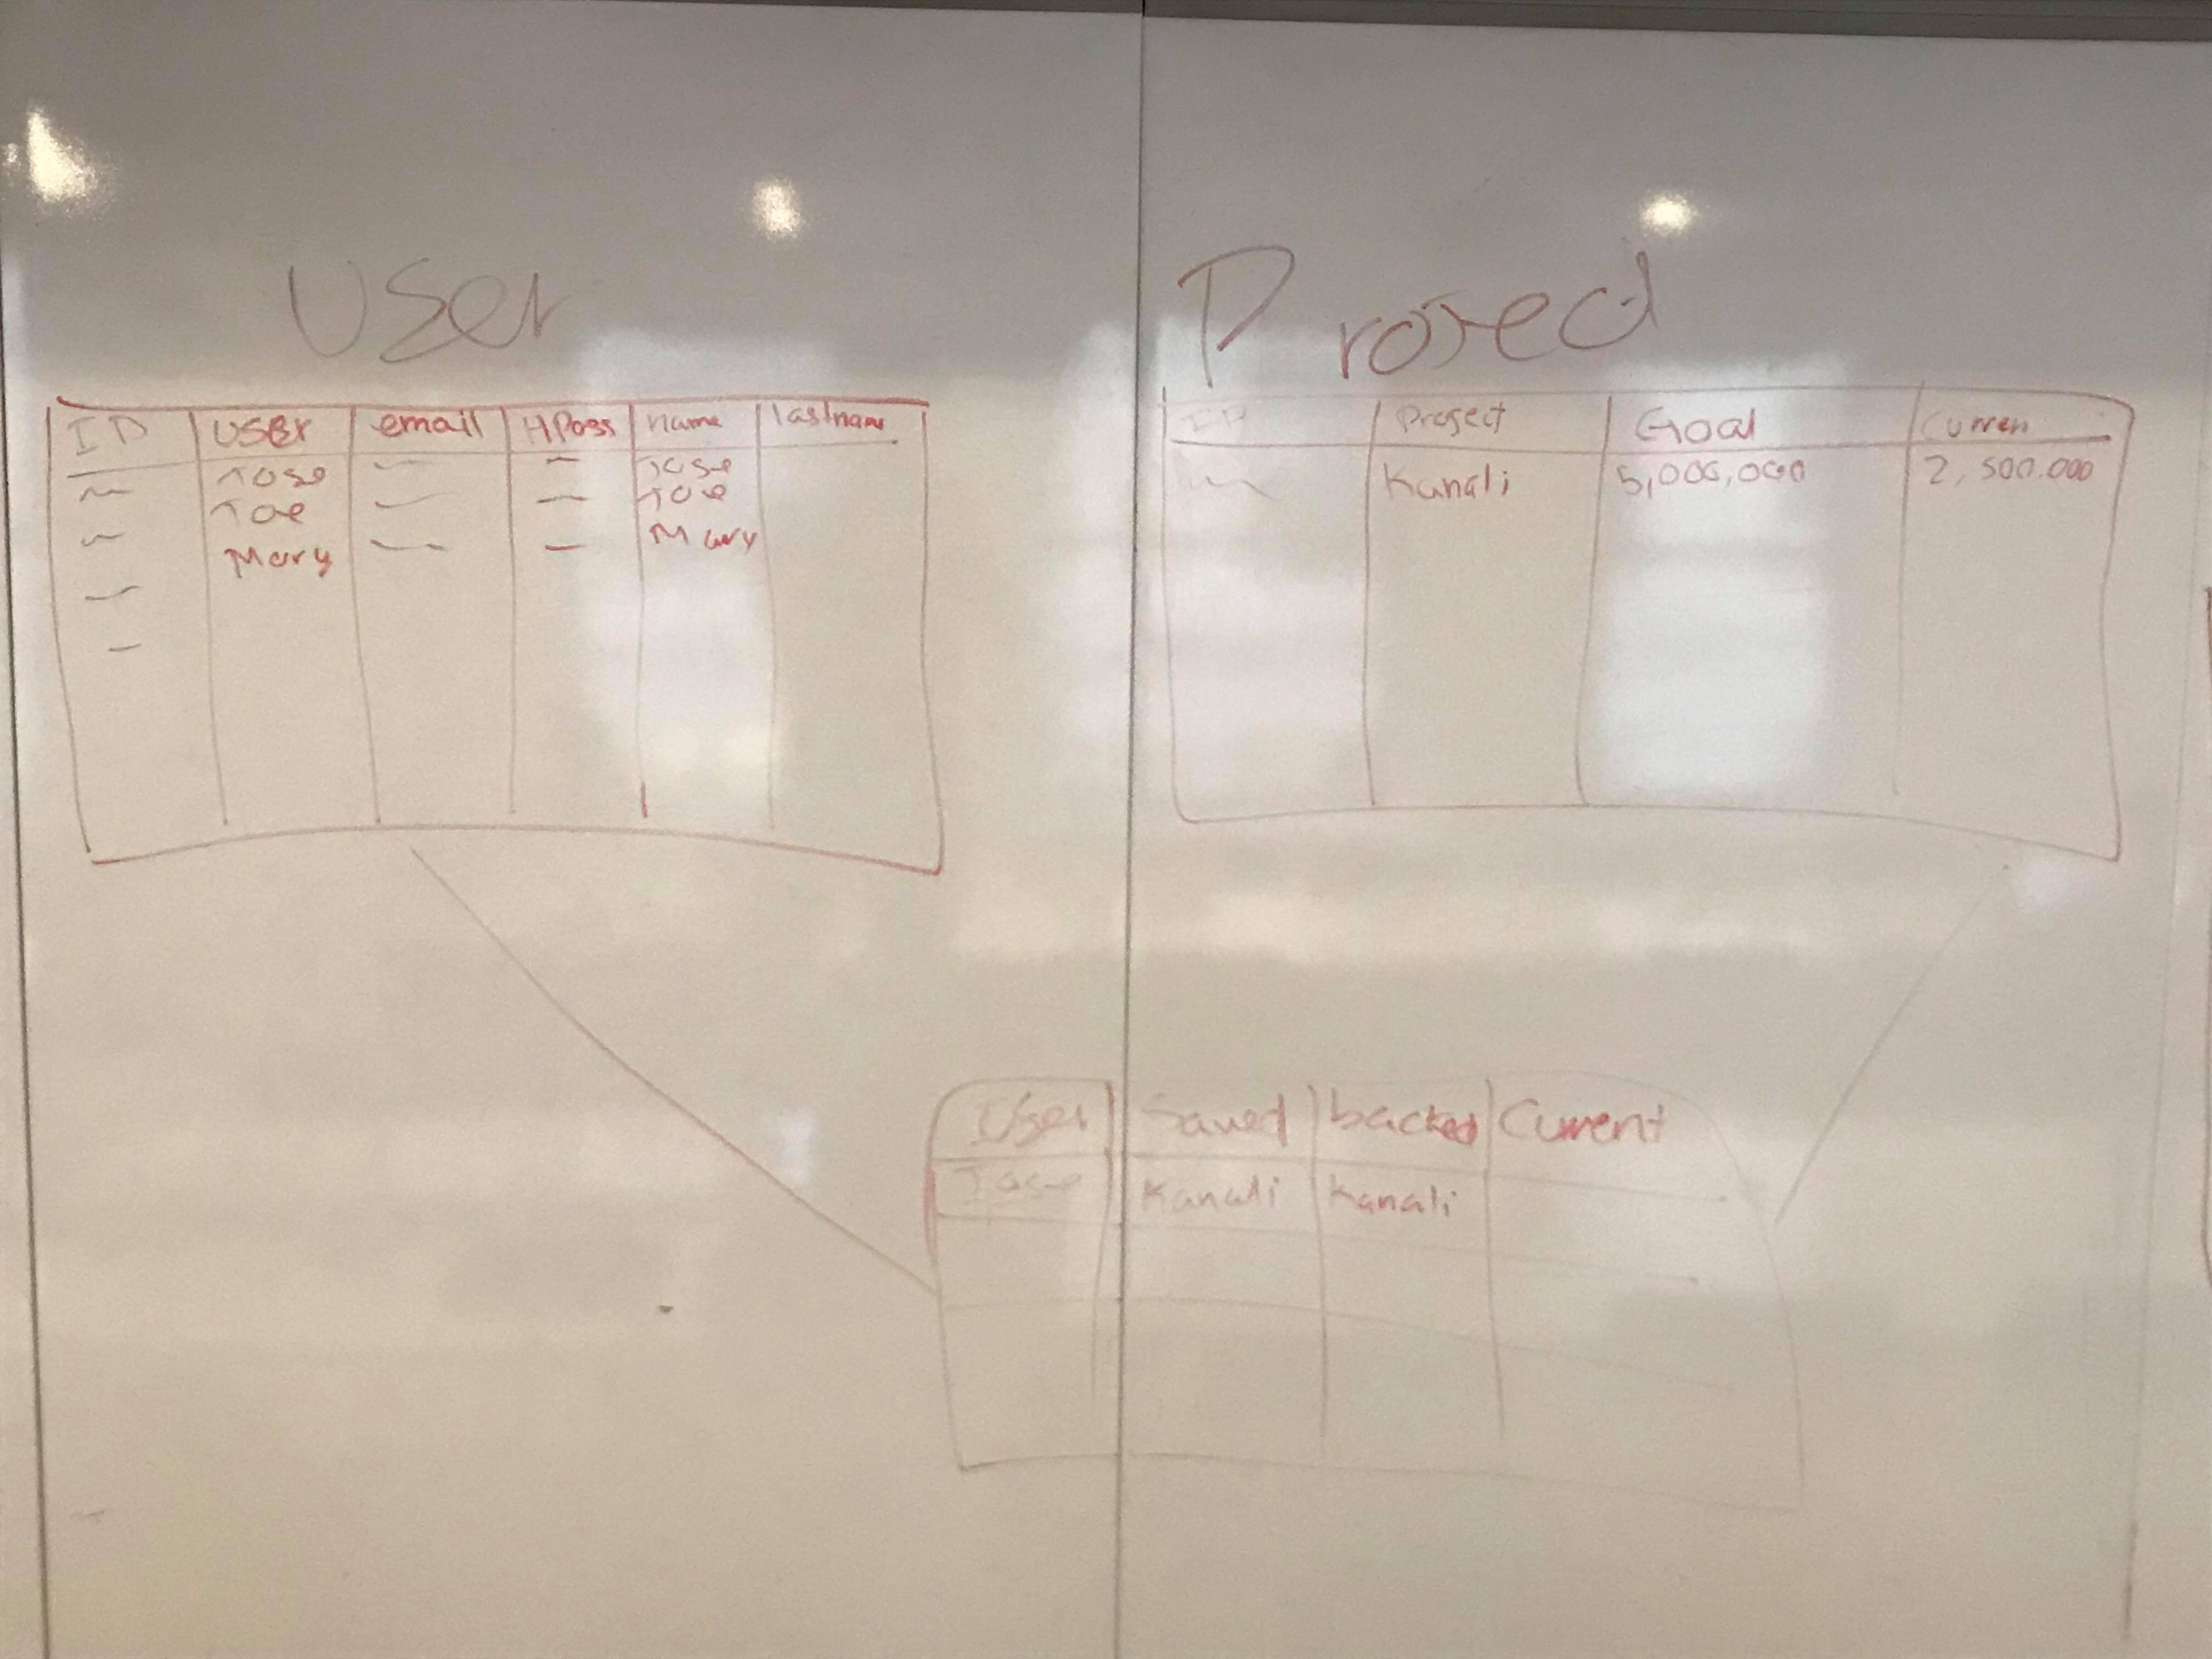 User
ID user email HPass name lastnam
Jose Jose
Joe Joe
Mary Mary
Project
ID Project Goal Curren
Kanali 5,000,000 2,500.000
User Saved backed Current
Jose Kanali Kanali